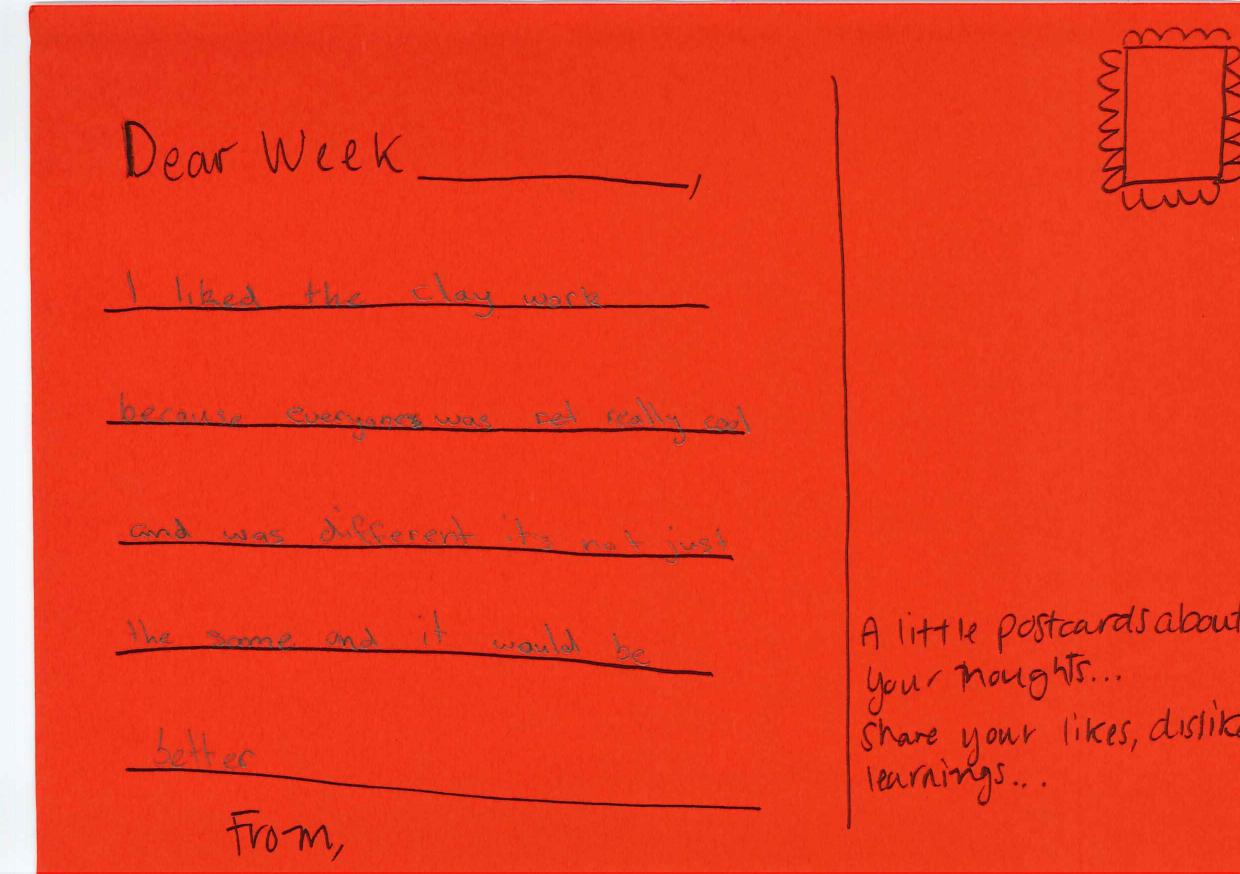 Dear Week ________,
I liked the clay work
because everyones was really cool
and was different its not just
the same and it would be
better
From,
A little postcards about
your thoughts...
share your likes, dislike
learnings...